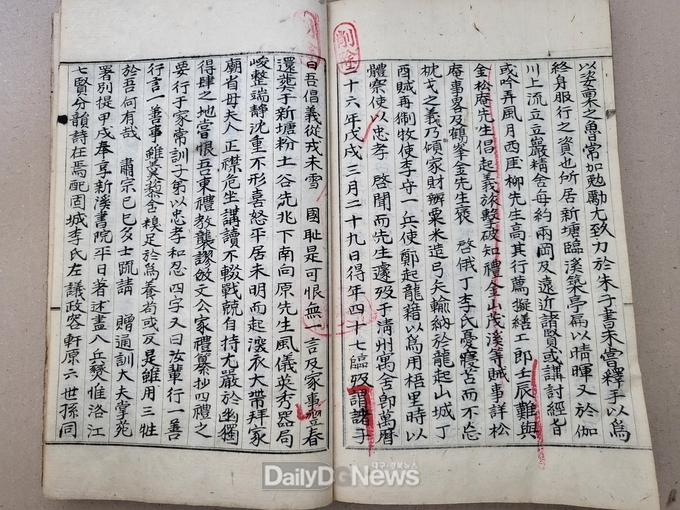 以姿稟之魯常加勉勵尤致力於朱子書未嘗釋手以爲
終身服行之資也所居新塘臨溪築亭扁以晴暉又於伽
川上流立立巖精舍每約兩岡及遠近諸賢或講討經旨
或吟弄風月西厓柳先生高其行薦擬繕工郎壬辰難與
金松庵先生倡起義旅擊破知禮金山茂溪等賊事詳松
庵事畧及鶴峯金先生褒啓俄丁李氏憂寢苫而不忘
枕戈之義乃傾家財辦粟米造弓矢輸納於龍起山城丁
酉賊再猘牧使李守一兵使鄭起龍藉以爲用梧里時以
體察使以忠孝啓聞而先生遽歿于淸州寓舍卽萬曆
二十六年戊戌三月二十九日得年四十七臨歿謂諸子
曰吾倡義從戎未雪國耻是可恨無一言及家事翌春
還葬于新塘粉土谷先兆下南向原先生風儀英秀器局
峻整端靜沈重不形喜怒平居未明而起深衣大帶拜家
廟省母夫人正襟危坐講讀不輟戰兢自持尤嚴於幽獨
得肆之地嘗恨吾東禮敎襲謬敓文公家禮纂抄四禮之
要行于家常訓子弟以忠孝和忍四字又曰汝輩行一善
行言一善事雖羹藜含糗足於爲養苟或反是雖用三牲
於吾何有哉肅宗己巳多士疏請贈通訓大夫掌苑
署別提甲戌奉享新溪書院平日著述盡入兵燹惟洛江
七賢分韻詩在焉配固城李氏左議政容軒原六世孫同
削
DailyDGNews
대구·경북뉴스